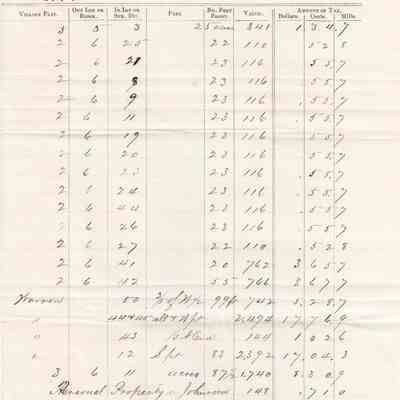 Village Plat. Out Lot or Block. In Lot or Sub. Div. Part. No. Feet Front. Value. Amount of Tax. Dollars. Cents. Mills.
3 5 3 25 841 1 3 4 7
2 6 25 22 110 5 2 8
2 6 21 23 116 5 5 7
2 6 8 23 116 5 5 7
2 6 9 23 116 5 5 7
2 6 11 23 116 5 5 7
2 6 19 23 116 5 5 7
2 6 20 23 116 5 5 7
2 6 23 116 5 5 7
2 6 24 23 116 5 5 7
2 6 23 116 5 5 7
2 6 26 23 116 5 5 7
2 6 27 22 110 5 2 8
2 6 41 20 762 3 6 5 7
2 6 42 55 766 3 6 7 7
742 5 2 8 7
2,474 17 7 6 9
" 43 144 1 0 2 6
" 12 S pt 83 2,392 17 0 4 3
3 6 11 87½ 1,740 8 3 0 9
Personal Property Johnson 148 7 1 0